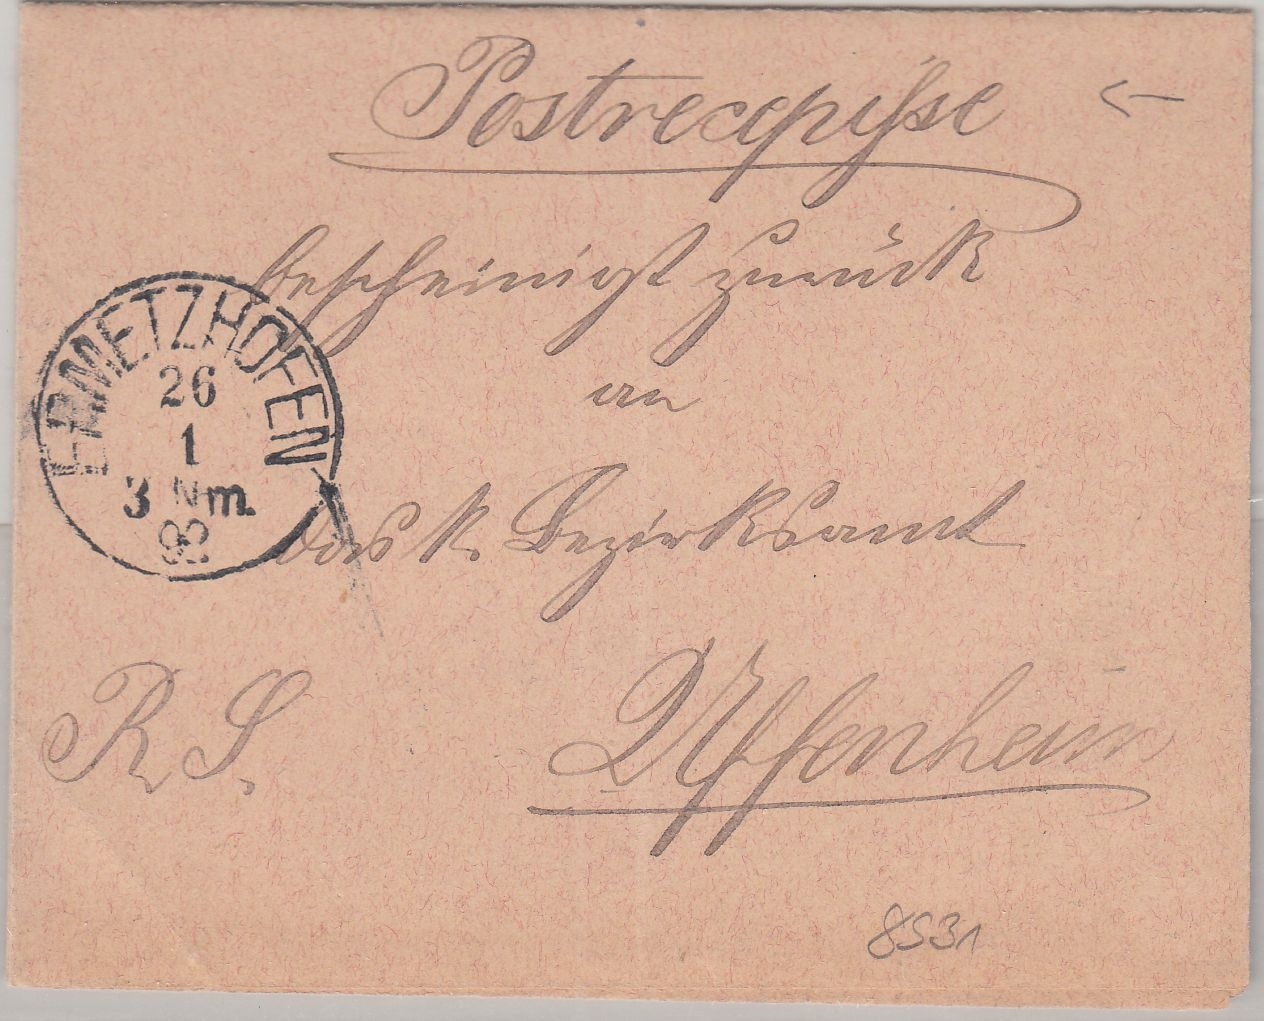 Postrecepisse
bescheinigt zurück
an
das k. Bezirksamt
Uffenheim
R. S.
ERMETZHOFEN
26
1
3 Nm.
8531